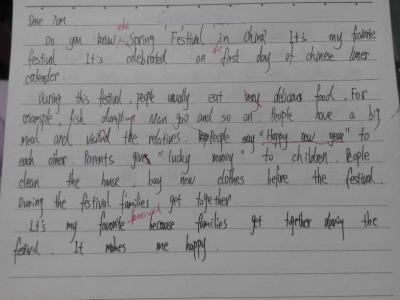 Dear Tom
Do you know the Spring Festival in China? It's my favorite
festival It's celebrated on the first day of chinese luner
calender.
During this festival, people usually eat very delicious food. For
example, fish dumplings Nian gao and so on People have a big
meal and visited the relatives. People say "Happy new year" to
each other. Parents give "lucky money" to children. People
clean the house, buy new clothes before the festival.
During the festival families get together.
It's my favorite festival because families get together during the
festival. It makes me happy.